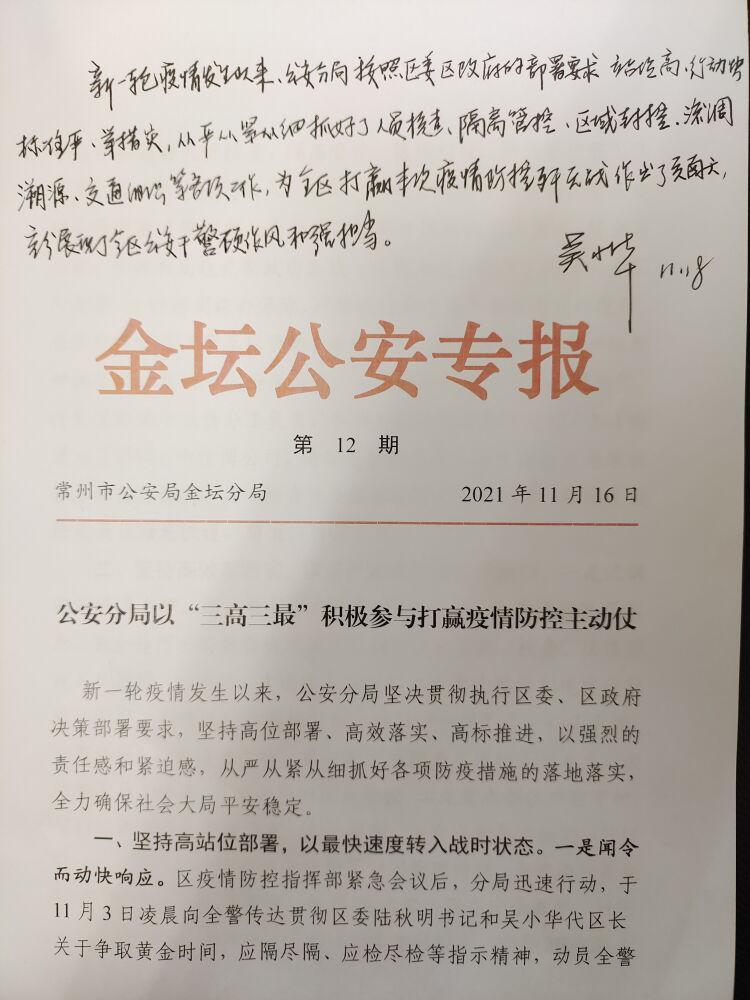 新一轮疫情发生以来、公安分局按照区委区政府的部署要求 站位高、行动快
标准严、举措实，从严从紧从细抓好了人员核查、隔离管控、区域封控、流调
溯源、交通 等各项工作，为全区打赢本次疫情防控歼灭战作出了贡献大，
展现了全区公安干警硬作风和强担当。
吴小华 11.18
金坛公安专报
第 12 期
常州市公安局金坛分局 2021年11月16日
公安分局以“三高三最”积极参与打赢疫情防控主动仗
新一轮疫情发生以来，公安分局坚决贯彻执行区委、区政府
决策部署要求，坚持高位部署、高效落实、高标推进，以强烈的
责任感和紧迫感，从严从紧从细抓好各项防疫措施的落地落实，
全力确保社会大局平安稳定。
一、坚持高站位部署，以最快速度转入战时状态。一是闻令
而动快响应。区疫情防控指挥部紧急会议后，分局迅速行动，于
11月3日凌晨向全警传达贯彻区委陆秋明书记和吴小华代区长
关于争取黄金时间，应隔尽隔、应检尽检等指示精神，动员全警